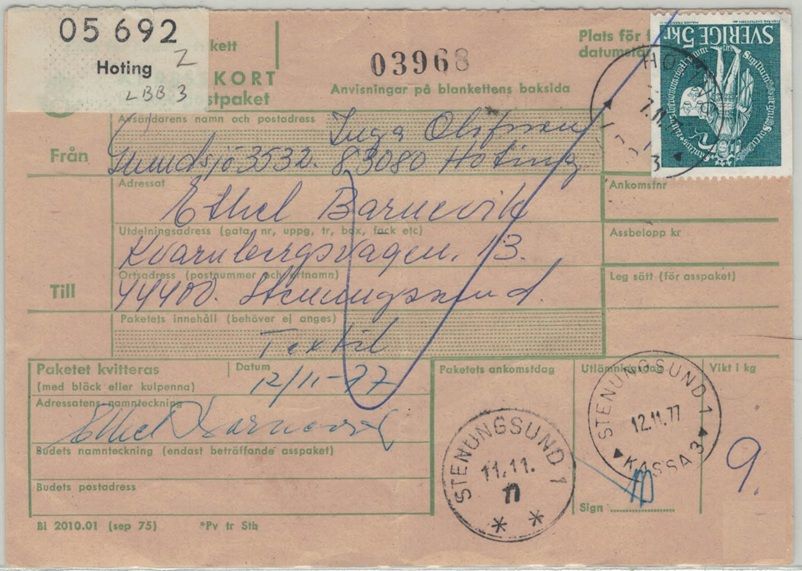 05 692
Hoting
Z
LBB 3
kett
KORT
stpaket
03968
Anvisningar på blankettens baksida
Plats för f
datumstä
SVERIGE 5kr
HOTING
7.11
3
Från
Avsändarens namn och postadress
Inga Olofsson
3532. 83080 Hoting
Till
Adressat
Ethel Barnevik
Utdelningsadress (gata, nr, uppg, tr, box, fack etc)
Kvarnbergsvägen. 13.
Ortsadress (postnummer och ortnamn)
44400. Stenungsund.
Paketets innehåll (behöver ej anges)
Textil
Ankomstnr
Assbelopp kr
Leg sätt (för asspaket)
Paketet kvitteras
(med bläck eller kulpenna)
Datum
12/11-77
Adressatens namnteckning
Ethel Barnevik
Budets namnteckning (endast beträffande asspaket)
Budets postadress
Paketets ankomstdag
STENUNGSUND 1
11.11.
77
* *
Utlämningsdag
STENUNGSUND 1
12.11.77
KASSA 3
Sign
Vikt i kg
9.
Bl 2010.01 (sep 75) *Pv tr Sth